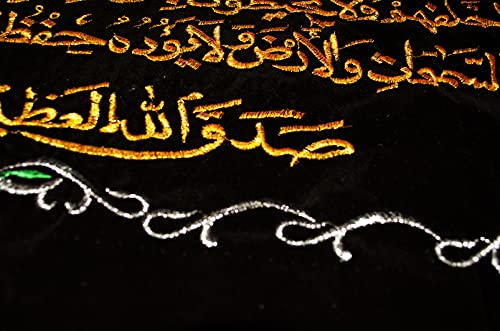 خلفهم ولا يحيطون
السموات والأرض ولا يؤده حفظ
صدق الله العظ